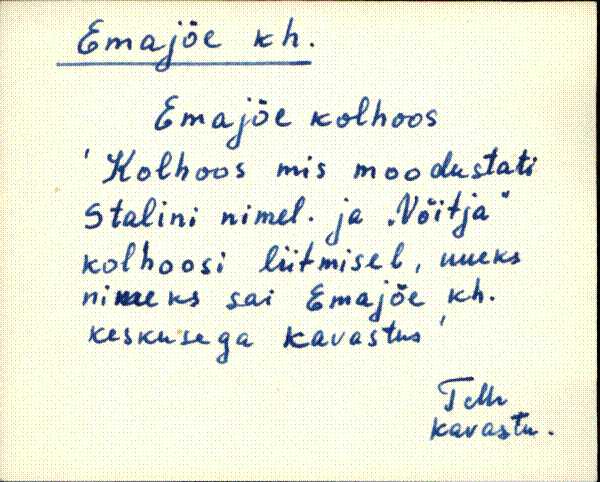 Emajõe kh.
Emajõe kolhoos
'Kolhoos mis moodustati
Stalini nimel. ja „Võitja"
kolhoosi liitmisel, uueks
nimeks sai Emajõe kh.
keskusega Kavastus'
Kavastu.